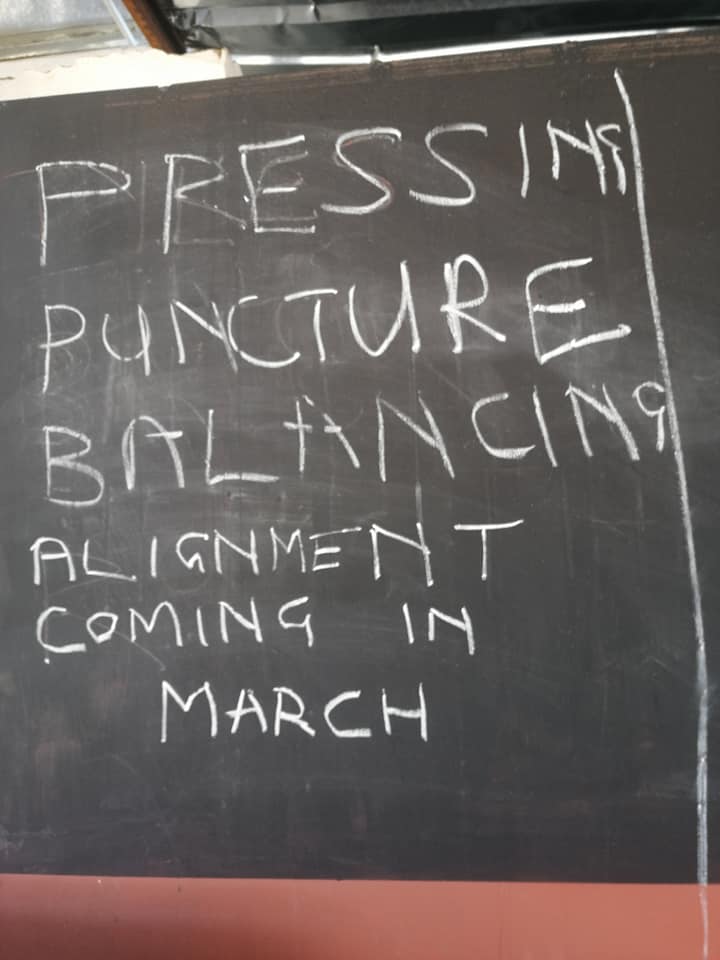 PRESSING
PUNCTURE
BALANCING
ALIGNMENT
COMING IN
MARCH